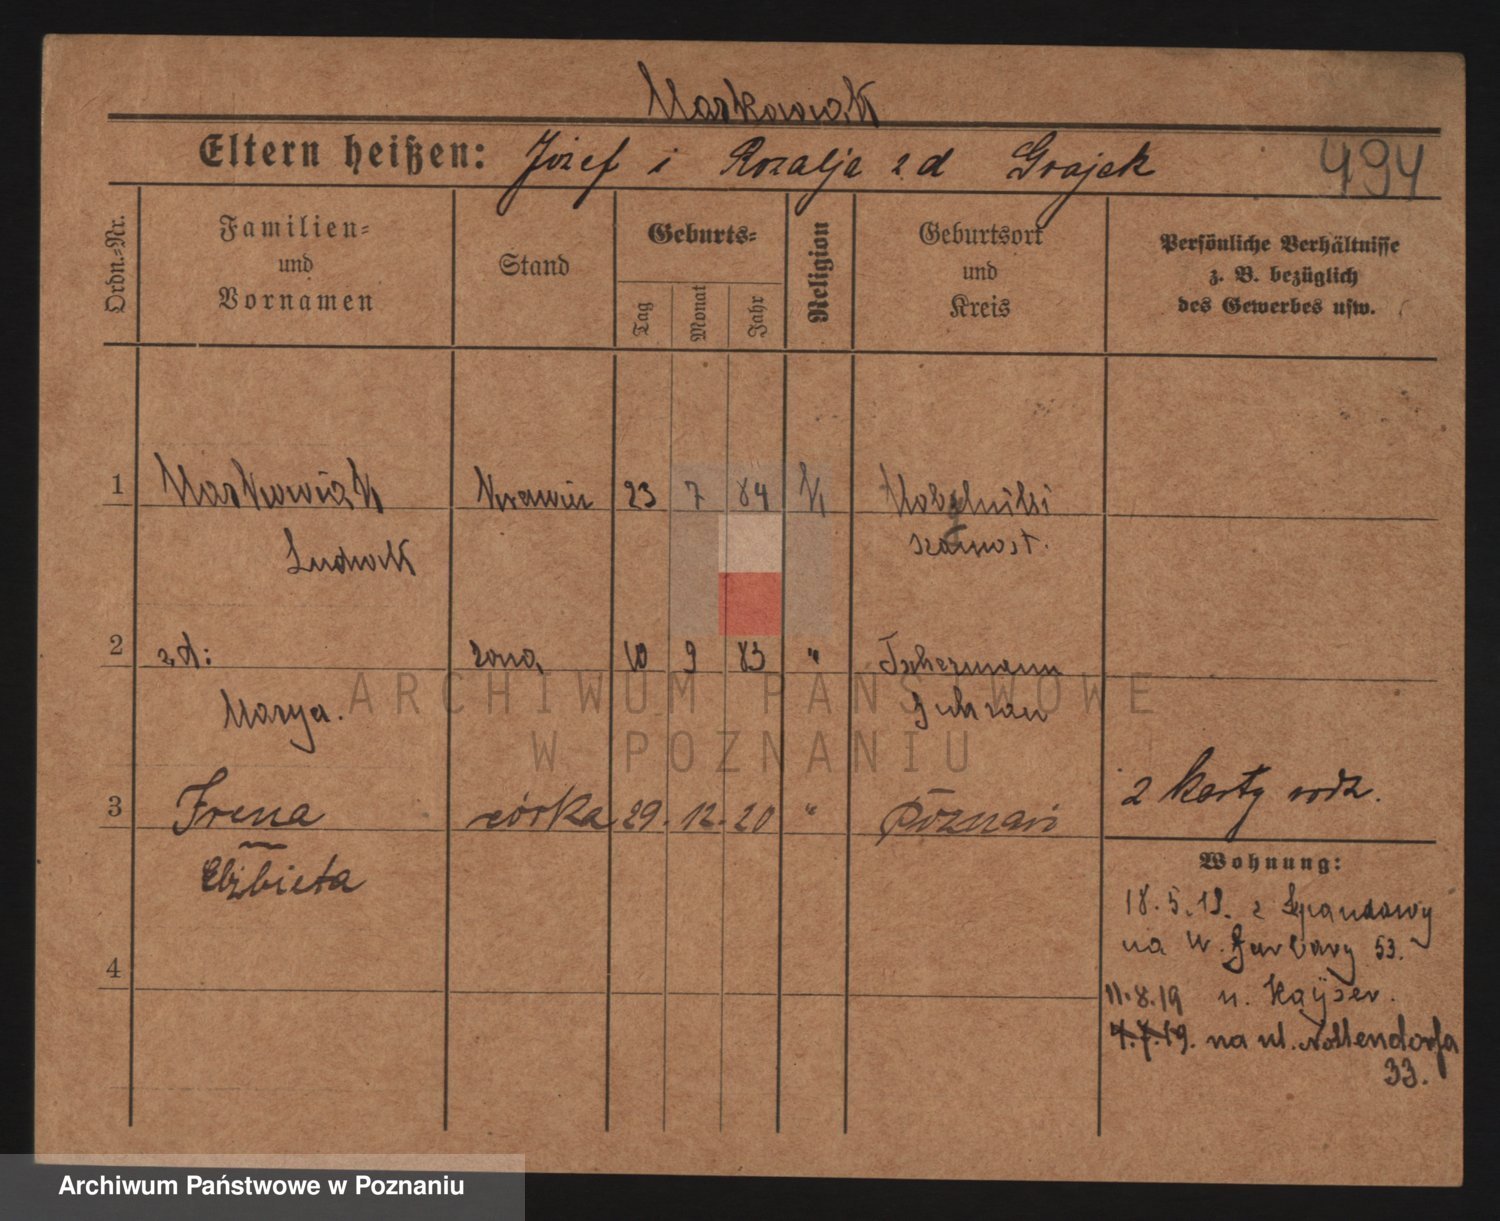 Markowiak
Eltern heißen: Józef i Rozalja zd Grajek
494
Ordn.-Nr.
Familien-
und
Vornamen
Stand
Geburts-
Tag
Monat
Jahr
Religion
Geburtsort
und
Kreis
Persönliche Verhältnisse
z. B. bezüglich
des Gewerbes usw.
1 Markowiak 23 7 84
Ludwik
2 zd: żona 10 9 83 "
Marya.
3 Irena córka 29. 12. 20 " Poznań
Elżbieta
4
2 karty rodz.
Wohnung:
18.5.19. z Spandawy
na W. Garbary 53.
11.8.19 u. Kayser.
4.7.19. na ul. Nollendorfa
33.
ARCHIWUM PAŃSTWOWE
W POZNANIU
Archiwum Państwowe w Poznaniu